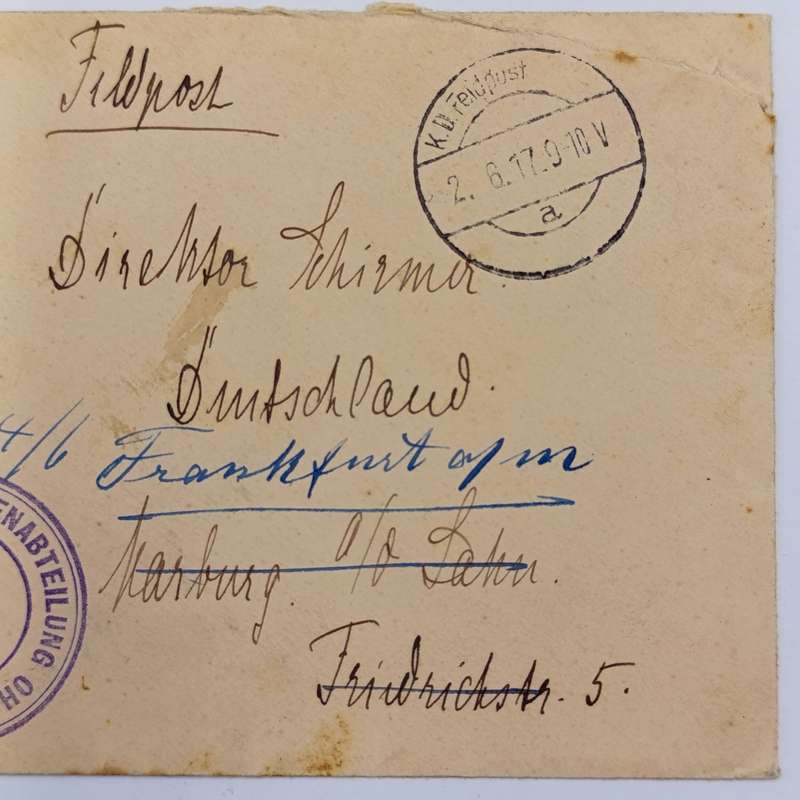 Feldpost
K.D. Feldpost
2. 6. 17. 9-10 V
a
Direktor Schirmer
Deutschland.
4/6 Frankfurt a/m
Marburg. a/d Lahn.
Friedrichstr. 5.
ENABTEILUNG OH